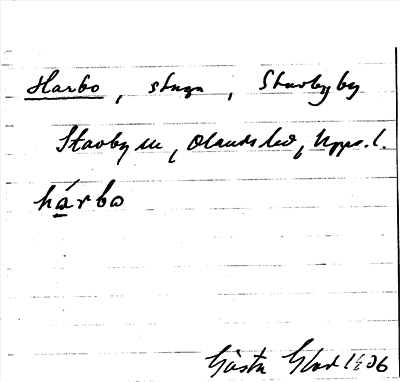 Harbo, stuga, Stavby by
Stavby sn, Olands hd, Upps. l.
hárbo
Gösta 1906